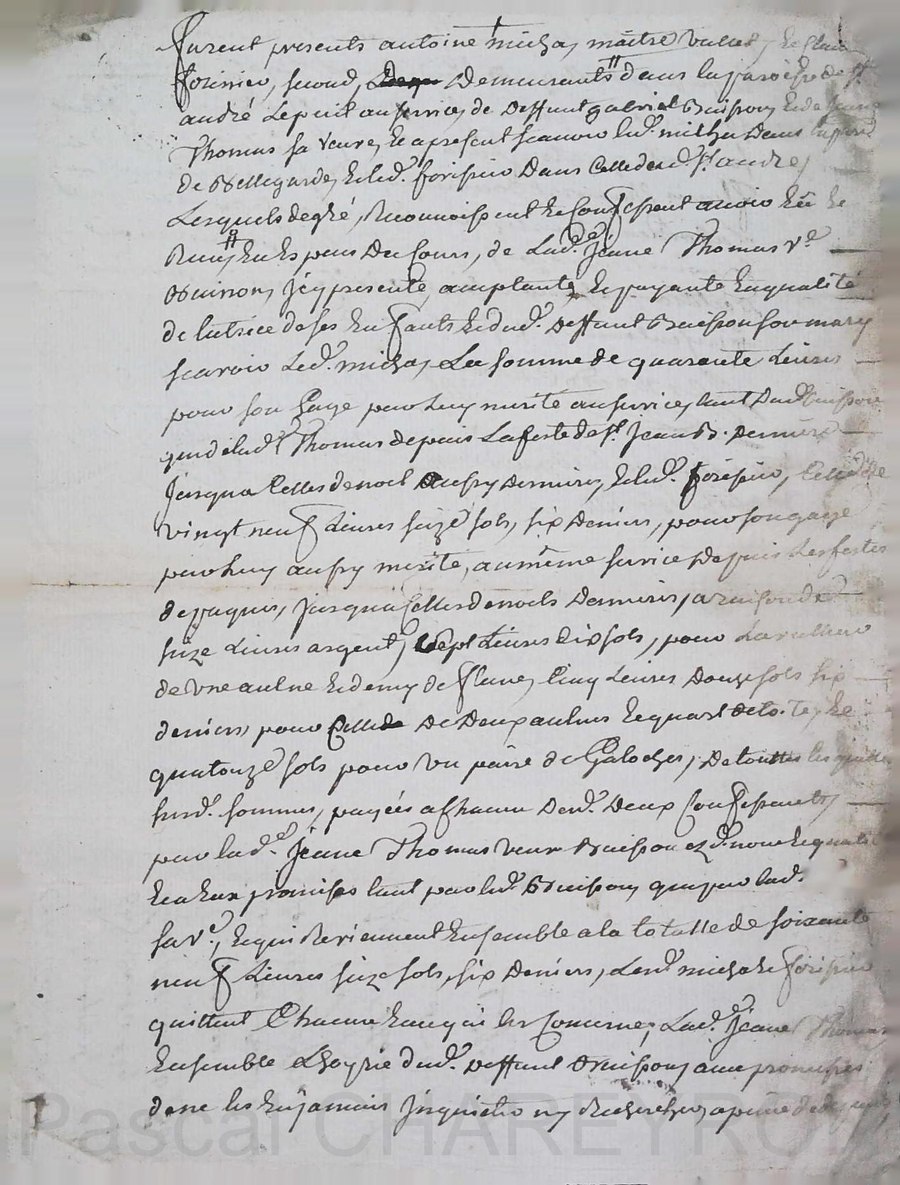 furent presents antoine micha, maitre vallet, et
forissier, second, demeurants dans la paroisse de St
andré Lepuit au service de deffunt gabriel Buisson, et de Jeane
Thomas sa veuve, et a present scavoir led. micha dans la
de Bellegarde, et led. forissier dans celle dud. St andré,
Lesquels de gré, Reconnoissent et confessent avoir Eü et
Receu, En Espece du Cours, de Lad. Jeane Thomas ve
Buisson, Icy presente, acceptante, et payante En qualité
de tutrice de ses Enfants et dud. deffunt Buisson son mary
scavoir Led. micha, La somme de quarante Livres
pour son gage par Luy merité au service, tant dud. Buisson
que de lad. Thomas depuis La feste de St Jean B. derniere
Jusqua Celles de noel aussy dernieres, et led. forissier, Celle de
vingt neuf Livres seize sols, six deniers, pour son gage
par Luy aussy merité, au même service depuis Les festes
de paques, Jusqua Celles de noels dernieres, a raison de
seize Livres argent, sept Livres dix sols, pour La valleur
de une aulne et demy de Cinq Livres douze sols six
deniers pour Celle de deux aulnes et quart de toile, et
quatorze sols pour un paire de galoches, de touttes les quelles
susd. sommes, payées a chacun desd. deux Confessants,
par lad. Jeane Thomas veuve Buisson
et a Eux promises tant par led. Buisson, que par lad.
sa ve, et qui Reviennent Ensemble a la totalle de soixante
neuf Livres seize sols, six deniers, Lesd. micha et forissier
quittent Chacun En ce qui les Concerne, Lad. Jeane Thomas
Ensemble L'hoyrie dud. deffunt Buisson, avec promesses
de ne les En Jamais Inquieter ny Rechercher, a peine de
Pascal CHAREYRON